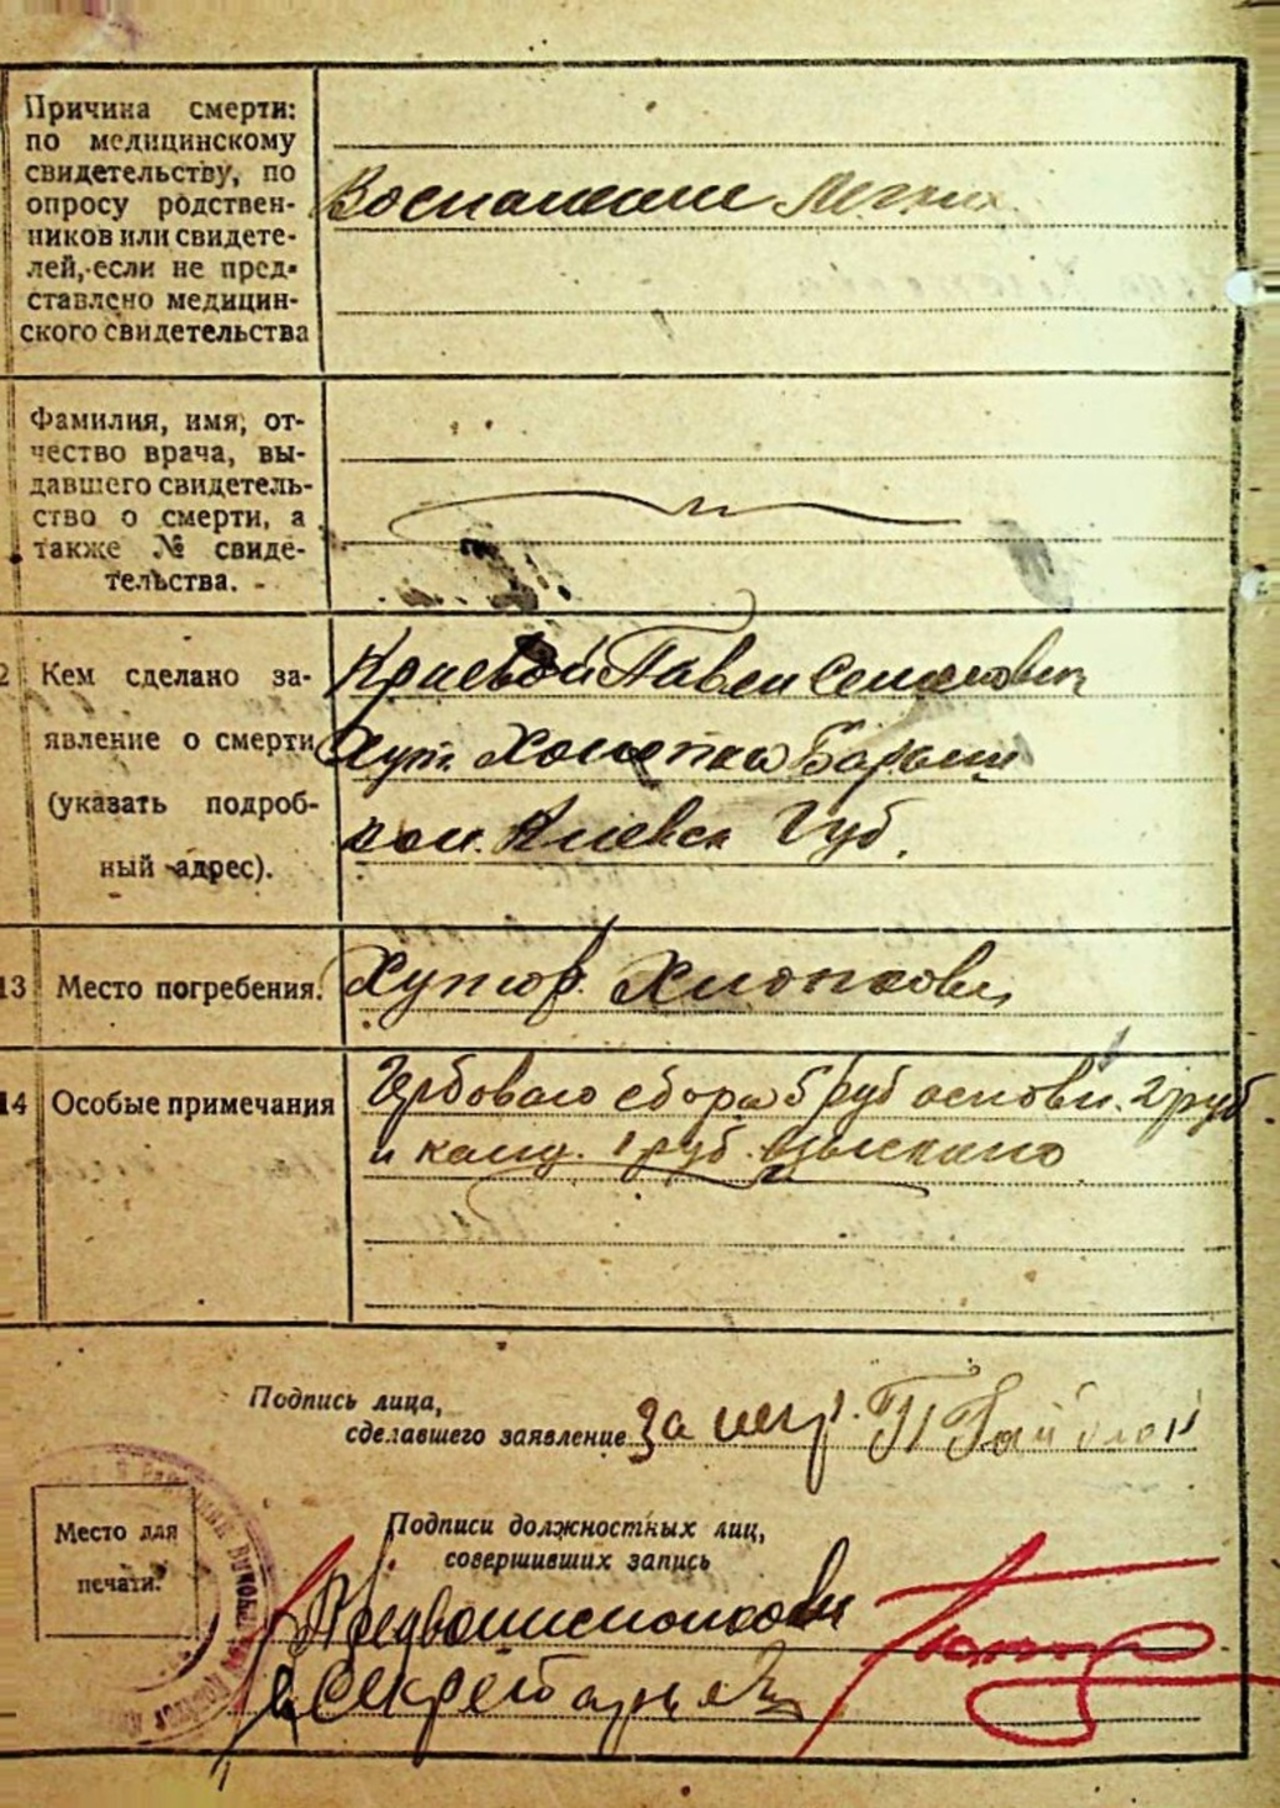 Причина смерти:
по медицинскому
свидетельству, по
опросу родствен-
ников или свидете-
лей, если не пред-
ставлено медицин-
ского свидетельства
Воспаление Легких
Фамилия, имя, от-
чество врача, вы-
давшего свидетель-
ство о смерти, а
также № свиде-
тельства.
2 Кем сделано за-
явление о смерти
(указать подроб-
ный адрес).
Краевой Павел Семенович
Хут.
Киевск Губ.
13 Место погребения.
Хутор
14 Особые примечания
Гербоваго сбора 5 руб основн. 2 руб
и канц. 1 руб. взыскано
Подпись лица,
сделавшего заявление
За негр. П
Место для
печати.
Подписи должностных лиц,
совершивших запись
Секретарь